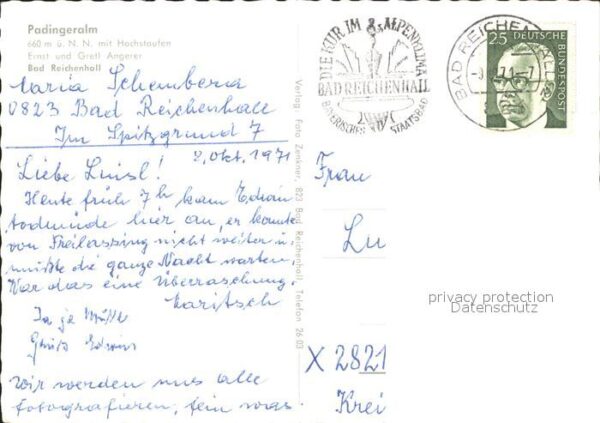 Padingeralm
660 m ü. N. N. mit Hochstaufen
Ernst und Gretl Angerer
Bad Reichenhall
Maria Schembera
0823 Bad Reichenhall
Im Spitzgrund 7
2. Okt. 1971
Liebe Linsl!
Heute früh 7h kam
todmüde hier an, er konnte
von Freilassing nicht weiter u.
mußte die ganze Nacht warten.
War das eine Überraschung.
Maritsch
Gruß
Wir werden uns alle
fotografieren, fein was.
Verlag Foto Zenkner, 823 Bad Reichenhall, Telefon 26 03
DIE KUR IM ALPENKLIMA
BAD REICHENHALL
BAYERISCHES STAATSBAD
BAD REICHENHALL
25 DEUTSCHE BUNDESPOST
Frau
Lu
privacy protection
Datenschutz
X 2821
Krei